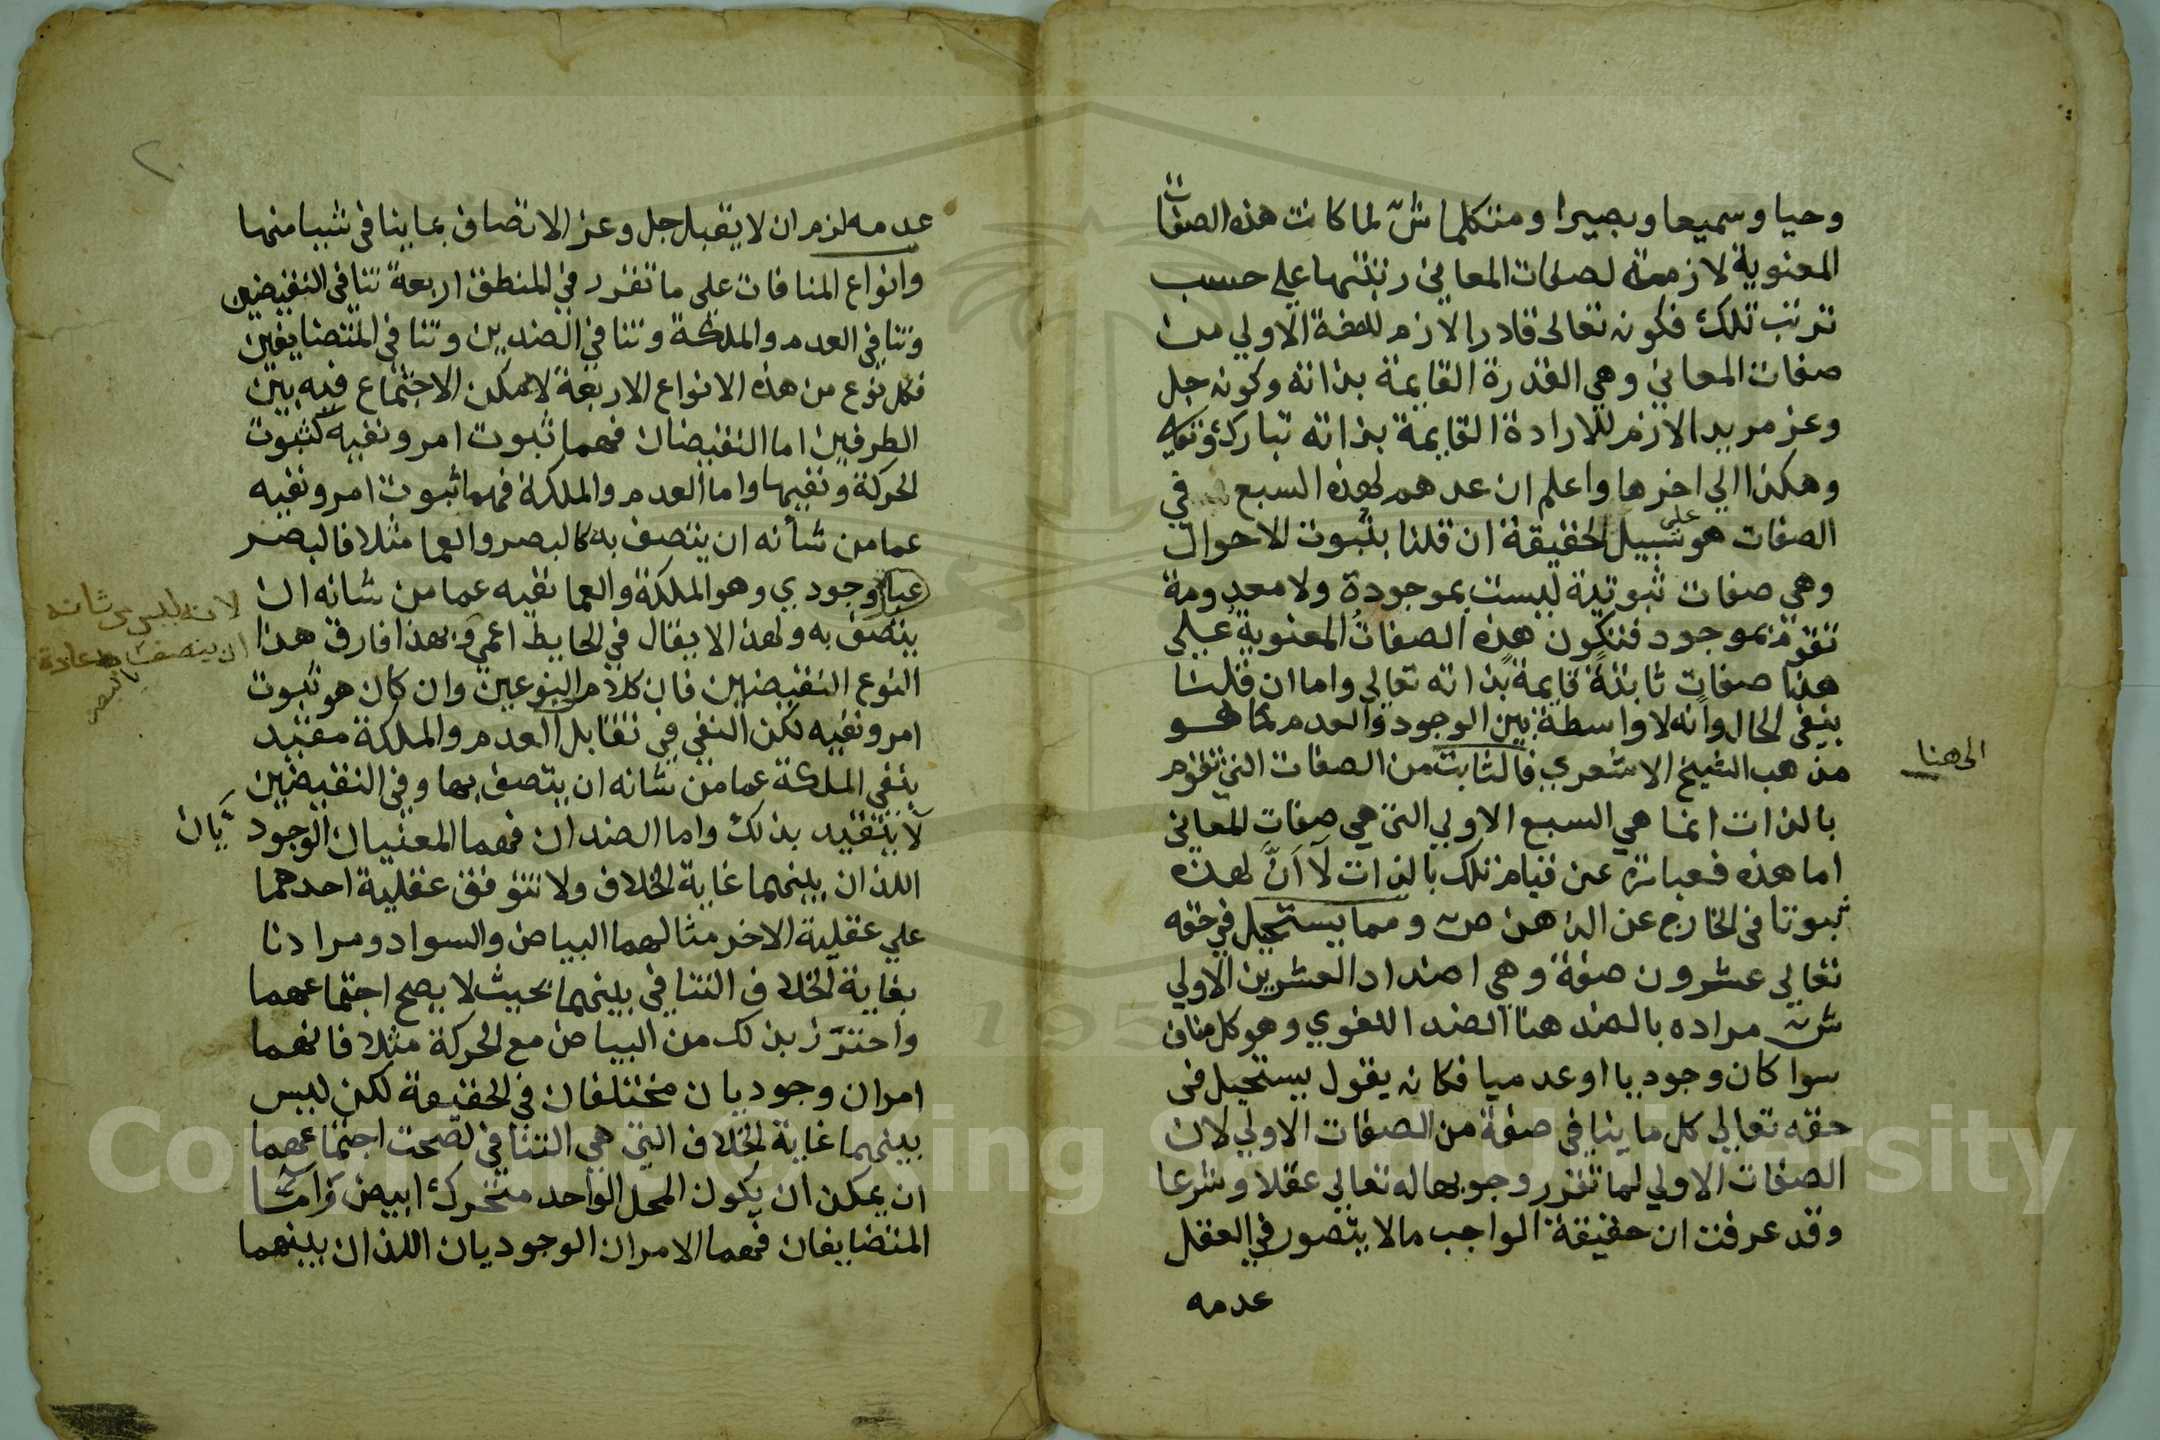 وحيا وسميعا وبصيرا ومتكلما ش لما كانت هذه الصفات
المعنوية لازمة لصفات المعاني رتبتها على حسب
ترتب تلك فكونه تعالى قادرا لازم للصفة الاولي من
صفات المعاني وهي القدرة القايمة بذاته وكونه جل
وعز مريدا لازم للارادة القايمة بذاته تبارك وتعالى
وهكذا الي اخرها واعلم ان عدهم لهذه السبع في
الصفات هو على سبيل الحقيقة ان قلنا بثبوت الاحوال
وهي صفات ثبوتية ليست بموجودة ولا معدومة
تقوم بموجود فتكون هذه الصفات المعنوية على
هذا صفات ثابتة قايمة بذاته تعالي واما ان قلنا
بنفي الحال وانه لا واسطة بين الوجود والعدم كما هو
مذهب الشيخ الاشعري فالثابت من الصفات التي تقوم
بالذات انما هي السبع الاولي التي هي صفات المعاني
اما هذه فعبارة عن قيام تلك بالذات لا ان لهذه
ثبوتا في الخارج عن الذهن ص ومما يستحيل في حقه
تعالي عشرون صفة وهي اضداد العشرين الاولي
ش مراده بالضد هنا الضد اللغوي وهو كل مناف
سوا كان وجوديا او عدميا فكانه يقول يستحيل في
حقه تعالي كل ما ينافي صفة من الصفات الاولي لان
الصفات الاولي لما تقرر وجوبها له تعالي عقلا وشرعا
وقد عرفت ان حقيقة الواجب ما لا يتصور في العقل
عدمه
الى هنا
٢٠
عدمه لزم ان لا يقبل جل وعز الاتصاف بما ينافي شيبا منها
وانواع المنافات علي ما تقرر في المنطق اربعة تنافي النقيضين
وتنافي العدم والملكة وتنافي الضدين وتنافي المتضايفين
فكل نوع من هذه الانواع الاربعة لا يمكن الاجتماع فيه بين
الطرفين اما النقيضان فهما ثبوت امر ونفيه كثبوت
الحركة ونفيها واما العدم والملكة فهما ثبوت امر ونفيه
عما من شأنه ان يتصف به كالبصر والعما مثلا فالبصر
عبارة وجودي وهو الملكة والعما نفيه عما من شانه ان
يتصف به ولهذا لا يقال في الحايط اعمي وبهذا فارق هذا
النوع النقيضين فان كلام النوعين وان كان هو ثبوت
امر ونفيه لكن النفي في تقابل العدم والملكة مقيد
بنفي الملكة عما من شانه ان يتصف بها وفي النقيضين
لا يتقيد بذلك واما الضدان فهما المعنيان الوجوديان
اللذان بينهما غاية الخلاف ولا تتوقف عقلية احدهما
علي عقلية الاخر مثالهما البياض والسواد ومرادنا
بغاية الخلاف التنافي بينهما بحيث لا يصح اجتماعهما
واحترز بذلك من البياض مع الحركة مثلا فانهما
امران وجوديان مختلفان في الحقيقة لكن ليس
بينهما غاية الخلاف التي هي التنافي لصحت اجتماعهما
ان يمكن ان يكون المحل الواحد متحرك ابيض واما
المتضايفان فهما الامران الوجوديان اللذان بينهما
لانه ليس من شانه
ان يتصف به عادة
بالبصر
Copyright © King Saud University
195